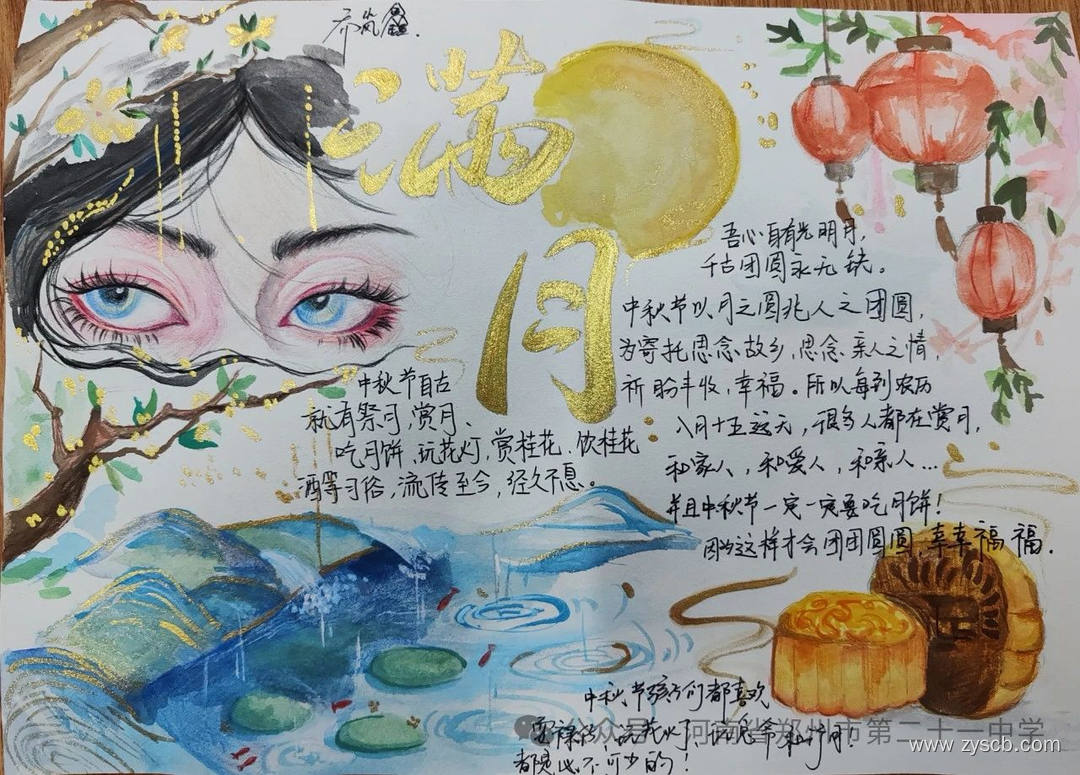 乔岚鑫.
满月
吾心自有光明月,
千古团圆永无缺。
中秋节以月之圆兆人之团圆,
为寄托思念故乡,思念亲人之情,
祈盼丰收,幸福。所以每到农历
八月十五这天,很多人都在赏月,
和家人,和爱人,和亲人...
并且中秋节一定一定要吃月饼!
因为这样才会团团圆圆,幸幸福福.
中秋节自古
就有祭月,赏月、
吃月饼、玩花灯,赏桂花、饮桂花
酒等习俗,流传至今,经久不息。
中秋节孩子们都喜欢
都是必不可少的!
公众号·河南省郑州市第二十一中学
www.zyscb.com